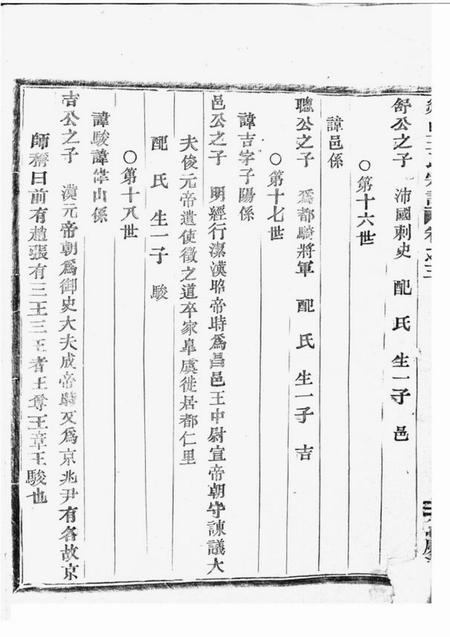 舒公之子 沛國刺史 配 氏 生一子 邑
○第十六世
諱邑係
聰公之子 爲都騎將軍 配 氏 生一子 吉
○第十七世
諱吉字子陽係
邑公之子 明經行潔漢昭帝時爲昌邑王中尉宣帝朝守諫議大
夫後元帝遣使徵之道卒家臯虞徙居都仁里
配 氏 生一子 駿
○第十八世
諱駿諱 山係
吉公之子 漢元帝朝爲御史大夫成帝時又爲京兆尹有名故京
師 曰前有趙張有三王三王者王尊王章王駿也